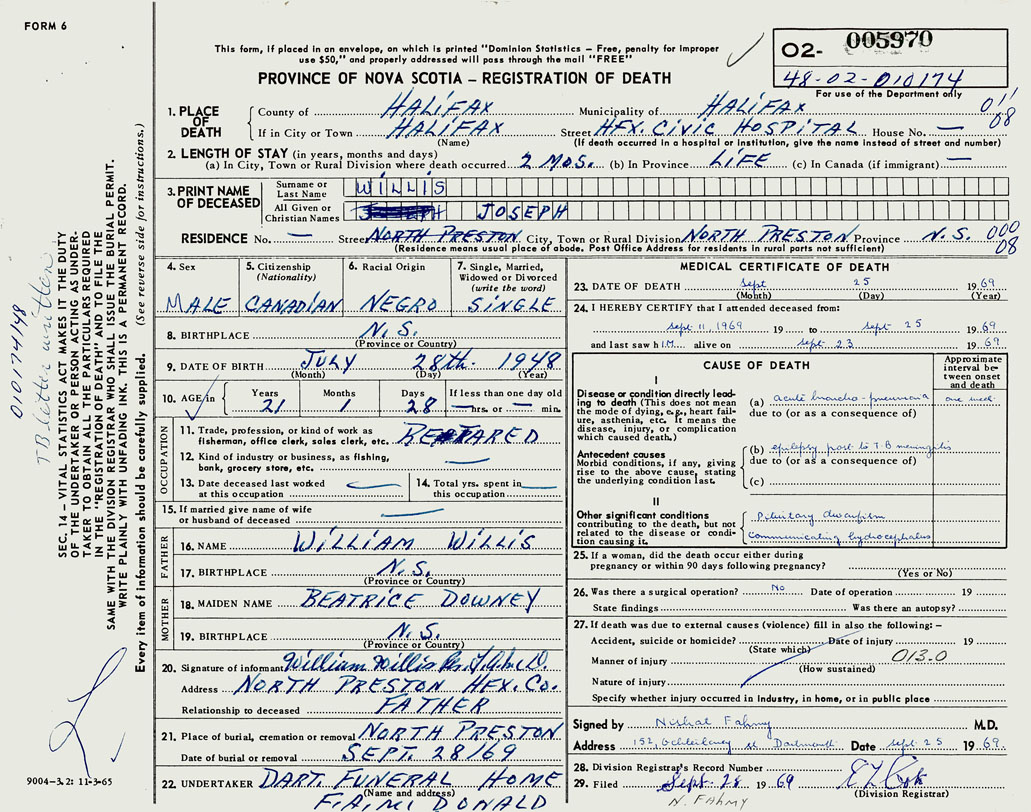 FORM 6
This form, if placed in an envelope, on which is printed "Dominion Statistics – Free, penalty for improper
use $50," and properly addressed will pass through the mail "FREE"
PROVINCE OF NOVA SCOTIA – REGISTRATION OF DEATH
02- 005970
48-02-010174
For use of the Department only
1. PLACE OF DEATH
County of HALIFAX Municipality of HALIFAX 011
If in City or Town HALIFAX Street HFX. CIVIC HOSPITAL House No. — 08
(Name) (If death occurred in a hospital or institution, give the name instead of street and number)
2. LENGTH OF STAY (in years, months and days)
(a) In City, Town or Rural Division where death occurred 2 MOS. (b) In Province LIFE (c) In Canada (if immigrant) —
3. PRINT NAME OF DECEASED
Surname or Last Name WILLIS
All Given or Christian Names JOSEPH
RESIDENCE No. — Street NORTH PRESTON City, Town or Rural Division NORTH PRESTON Province N.S. 000
(Residence means usual place of abode. Post Office Address for residents in rural parts not sufficient) 08
4. Sex
MALE
5. Citizenship (Nationality)
CANADIAN
6. Racial Origin
NEGRO
7. Single, Married, Widowed or Divorced (write the word)
SINGLE
8. BIRTHPLACE N.S.
(Province or Country)
9. DATE OF BIRTH JULY 28th. 1948
(Month) (Day) (Year)
10. AGE in Years 21 Months 1 Days 28 If less than one day old — hrs. or — min.
OCCUPATION
11. Trade, profession, or kind of work as
fisherman, office clerk, sales clerk, etc.
12. Kind of industry or business, as fishing,
bank, grocery store, etc. —
13. Date deceased last worked
at this occupation —
14. Total yrs. spent in
this occupation —
15. If married give name of wife
or husband of deceased —
FATHER
16. NAME WILLIAM WILLIS
17. BIRTHPLACE N.S.
(Province or Country)
MOTHER
18. MAIDEN NAME BEATRICE DOWNEY
19. BIRTHPLACE N.S.
(Province or Country)
20. Signature of informant William Willis
Address NORTH PRESTON HFX. CO.
Relationship to deceased FATHER
21. Place of burial, cremation or removal NORTH PRESTON
Date of burial or removal SEPT. 28/69
22. UNDERTAKER DART. FUNERAL HOME
(Name and address)
DONALD
MEDICAL CERTIFICATE OF DEATH
23. DATE OF DEATH Sept 25 1969
(Month) (Day) (Year)
24. I HEREBY CERTIFY that I attended deceased from:
Sept 11, 1969 19 to Sept 25 1969
and last saw h im alive on Sept 23 1969
CAUSE OF DEATH
Approximate interval between onset and death
I
Disease or condition directly leading to death (This does not mean
the mode of dying, e.g., heart failure, asthenia, etc. It means the
disease, injury, or complication
which caused death.)
(a) acute broncho-pneumonia one week
due to (or as a consequence of)
Antecedent causes
Morbid conditions, if any, giving
rise to the above cause, stating
the underlying condition last.
(b) epilepsy post to T.B meningitis
due to (or as a consequence of)
(c)
II
Other significant conditions
contributing to the death, but not
related to the disease or condition causing it.
Pituitary dwarfism
communicating hydrocephalus
25. If a woman, did the death occur either during
pregnancy or within 90 days following pregnancy?
(Yes or No)
26. Was there a surgical operation? No Date of operation 19
State findings Was there an autopsy?
27. If death was due to external causes (violence) fill in also the following: –
Accident, suicide or homicide? Date of injury 19
(State which)
Manner of injury 013.0
(How sustained)
Nature of injury
Specify whether injury occurred in industry, in home, or in public place
Signed by Fahmy M.D.
Address 152, Dartmouth Date Sept 25 1969.
28. Division Registrar's Record Number
29. Filed Sept. 28 1969
(Division Registrar)
N. FAHMY
SEC. 14 – VITAL STATISTICS ACT MAKES IT THE DUTY
OF THE UNDERTAKER OR PERSON ACTING AS UNDERTAKER TO OBTAIN ALL THE PARTICULARS REQUIRED
IN THE "REGISTRATION OF DEATH" AND TO FILE THE
SAME WITH THE DIVISION REGISTRAR WHO SHALL ISSUE THE BURIAL PERMIT.
WRITE PLAINLY WITH UNFADING INK. THIS IS A PERMANENT RECORD.
Every item of information should be carefully supplied. (See reverse side for instructions.)
010174/48
TB letter written
9004-3.2: 11-3-65